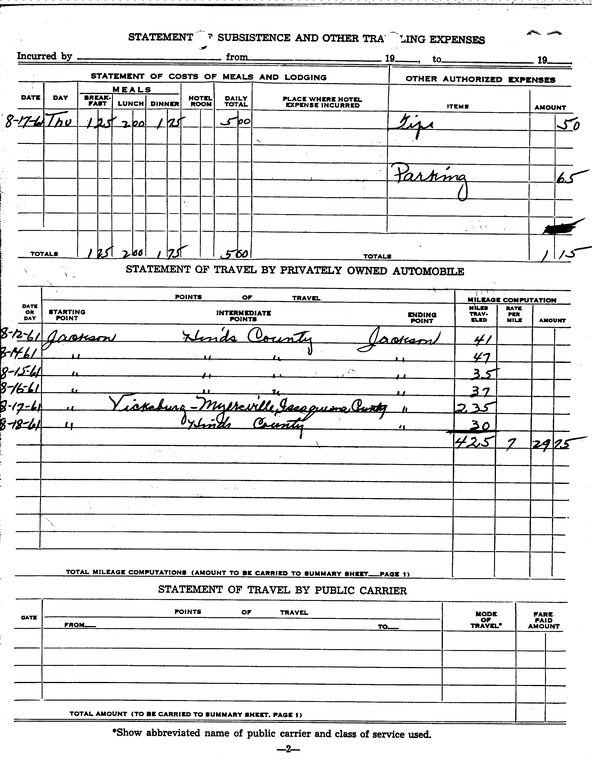 STATEMENT OF SUBSISTENCE AND OTHER TRAVELING EXPENSES
Incurred by from 19 , to 19
STATEMENT OF COSTS OF MEALS AND LODGING OTHER AUTHORIZED EXPENSES
DATE DAY MEALS BREAK-FAST LUNCH DINNER HOTEL ROOM DAILY TOTAL PLACE WHERE HOTEL EXPENSE INCURRED ITEMS AMOUNT
8-17-61 Thu 1 25 2 00 1 75 5 00 Tips 50
Parking 65
TOTALS 1 25 2 00 1 75 5 00 TOTALS 1 15
STATEMENT OF TRAVEL BY PRIVATELY OWNED AUTOMOBILE
DATE OR DAY POINTS OF TRAVEL STARTING POINT INTERMEDIATE POINTS ENDING POINT MILEAGE COMPUTATION MILES TRAV-ELED RATE PER MILE AMOUNT
8-12-61 Jackson Hinds County Jackson 41
8-14-61 " " " " 47
8-15-61 " " " " 35
8-16-61 " " " " 37
8-17-61 " Vicksburg - Myersville, Issaquena County " 235
8-18-61 " Hinds County " 30
425 7 29 75
TOTAL MILEAGE COMPUTATIONS (AMOUNT TO BE CARRIED TO SUMMARY SHEET—PAGE 1)
STATEMENT OF TRAVEL BY PUBLIC CARRIER
DATE POINTS OF TRAVEL FROM— TO— MODE OF TRAVEL* FARE PAID AMOUNT
TOTAL AMOUNT (TO BE CARRIED TO SUMMARY SHEET, PAGE 1)
*Show abbreviated name of public carrier and class of service used.
—2—